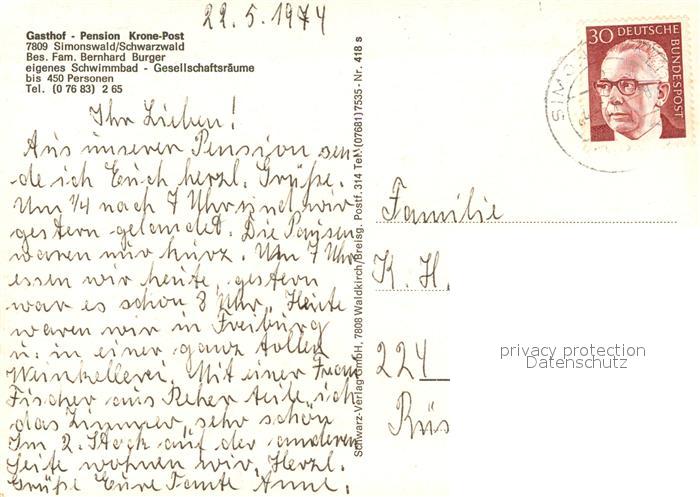 22.5.1974
Gasthof - Pension Krone-Post
7809 Simonswald/Schwarzwald
Bes. Fam. Bernhard Burger
eigenes Schwimmbad - Gesellschaftsräume
bis 450 Personen
Tel. (0 76 83) 2 65
Ihr Lieben!
Aus unserer Pension sen-
de ich Euch herzl. Grüße.
Um 1/4 nach 7 Uhr sind wir
gestern gelandet. Die Pausen
waren nur kurz. Um 7 Uhr
essen wir heute, gestern
war es schon 8 Uhr. Heute
waren wir in Freiburg
u. in einer ganz tollen
Weinkellerei. Mit einer Frau
Fischer aus Reher teile ich
das Zimmer, sehr schön
Im 2. Stock auf der anderen
Seite wohnen wir. Herzl.
Grüße Eure Tante Anne.
Schwarz-Verlag GmbH, 7808 Waldkirch/Breisg. Postf. 314 Tel. (07681) 7535 - Nr. 418 s
30 DEUTSCHE
BUNDESPOST
SIMO
Familie
K. H.
224
Rüs
privacy protection
Datenschutz